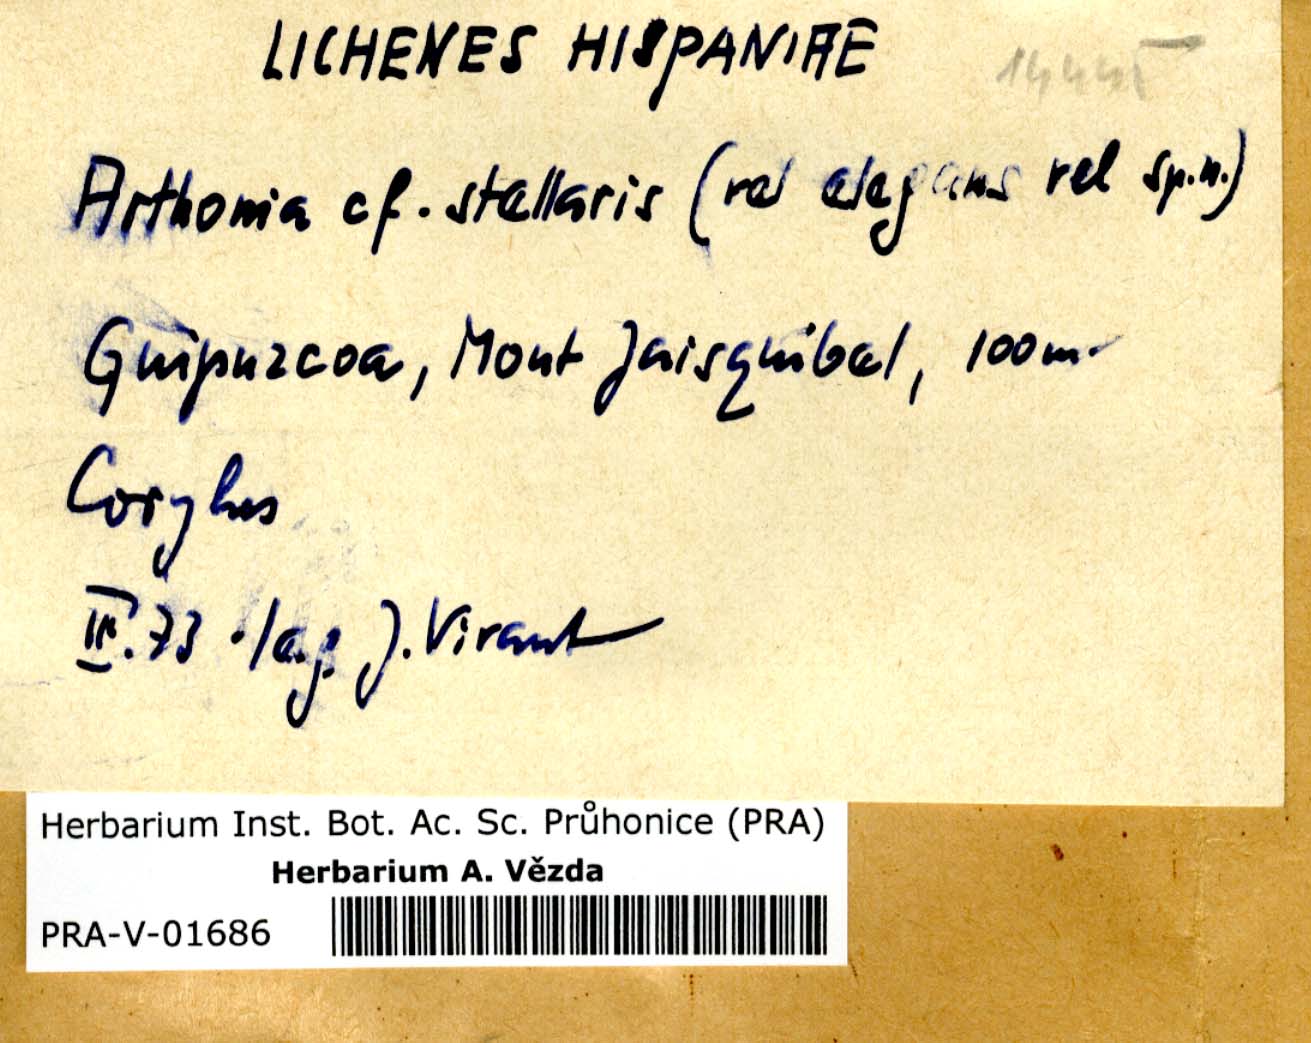 LICHENES HISPANIAE
Arthonia cf. stellaris (vel elegans vel sp.n.)
Guipuzcoa, Mont Jaisquibel, 100m.
Corylus
III.73 leg. J. Vivant
Herbarium Inst. Bot. Ac. Sc. Průhonice (PRA)
Herbarium A. Vězda
PRA-V-01686